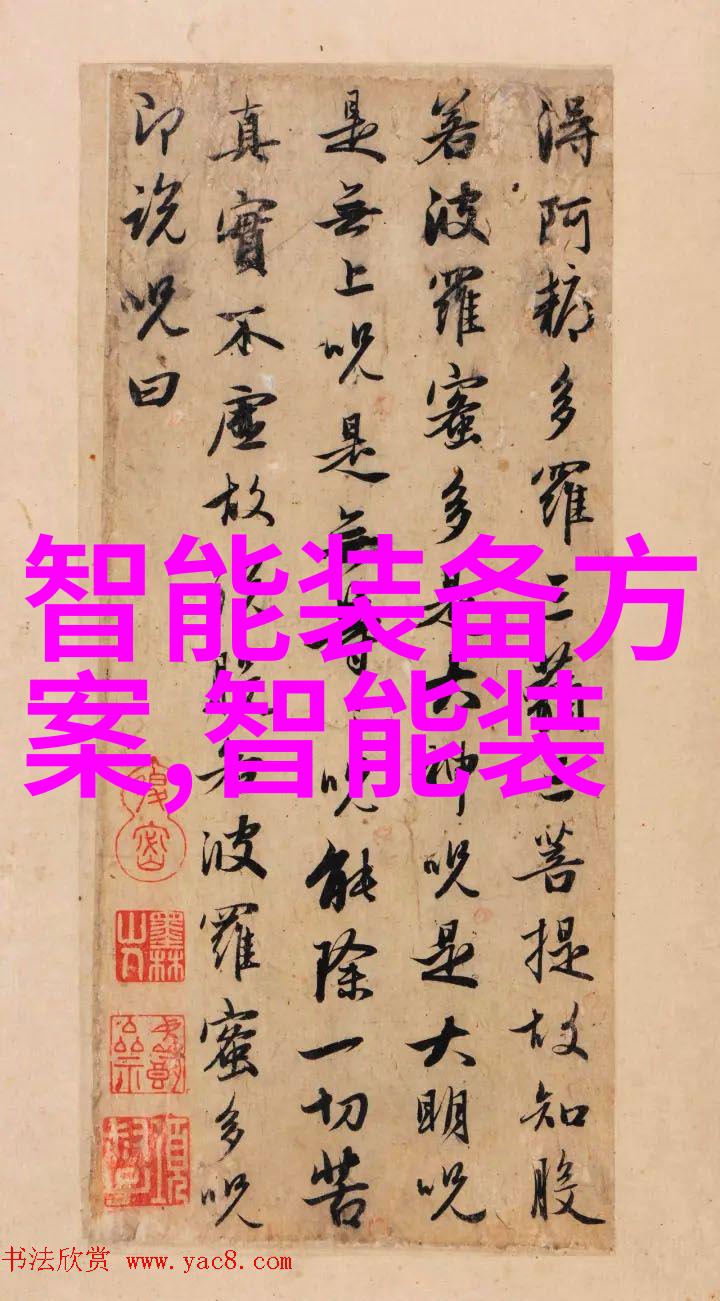 得阿耨多羅三藐三菩提故知般
若波羅蜜多是大神呪是大明呪
是無上呪是無等呪能除一切苦
真實不虛故說般若波羅蜜多呪
即說呪曰
智能装备方
案,智能装
墨林山人
书法欣赏 www.yac8.com